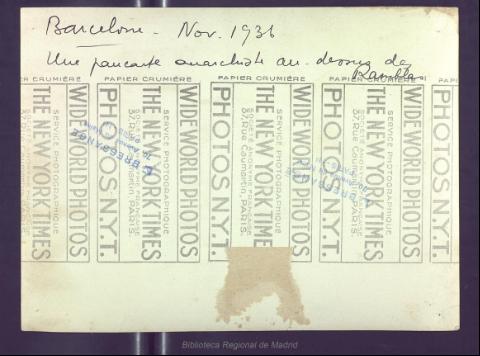 Barcelone - Nov. 1936
Une pancarte anarchiste au-dessus des Ramblas
PAPIER CRUMIÈRE PAPIER CRUMIÈRE PAPIER CRUMIÈRE PAPIER
WIDE WORLD PHOTOS
SERVICE PHOTOGRAPHIQUE
THE NEW YORK TIMES
37, Rue Caumartin, PARIS.
PHOTOS N.Y.T.
WIDE WORLD PHOTOS
SERVICE PHOTOGRAPHIQUE
THE NEW YORK TIMES
37, Rue Caumartin, PARIS.
PHOTOS N.Y.T.
WIDE WORLD PHOTOS
SERVICE PHOTOGRAPHIQUE
THE NEW YORK TIMES
37, Rue Caumartin, PARIS.
PHOTOS N.Y.T.
WIDE WORLD PHOTOS
SERVICE PHOTOGRAPHIQUE
THE NEW YORK TIMES
PARIS
Biblioteca Regional de Madrid